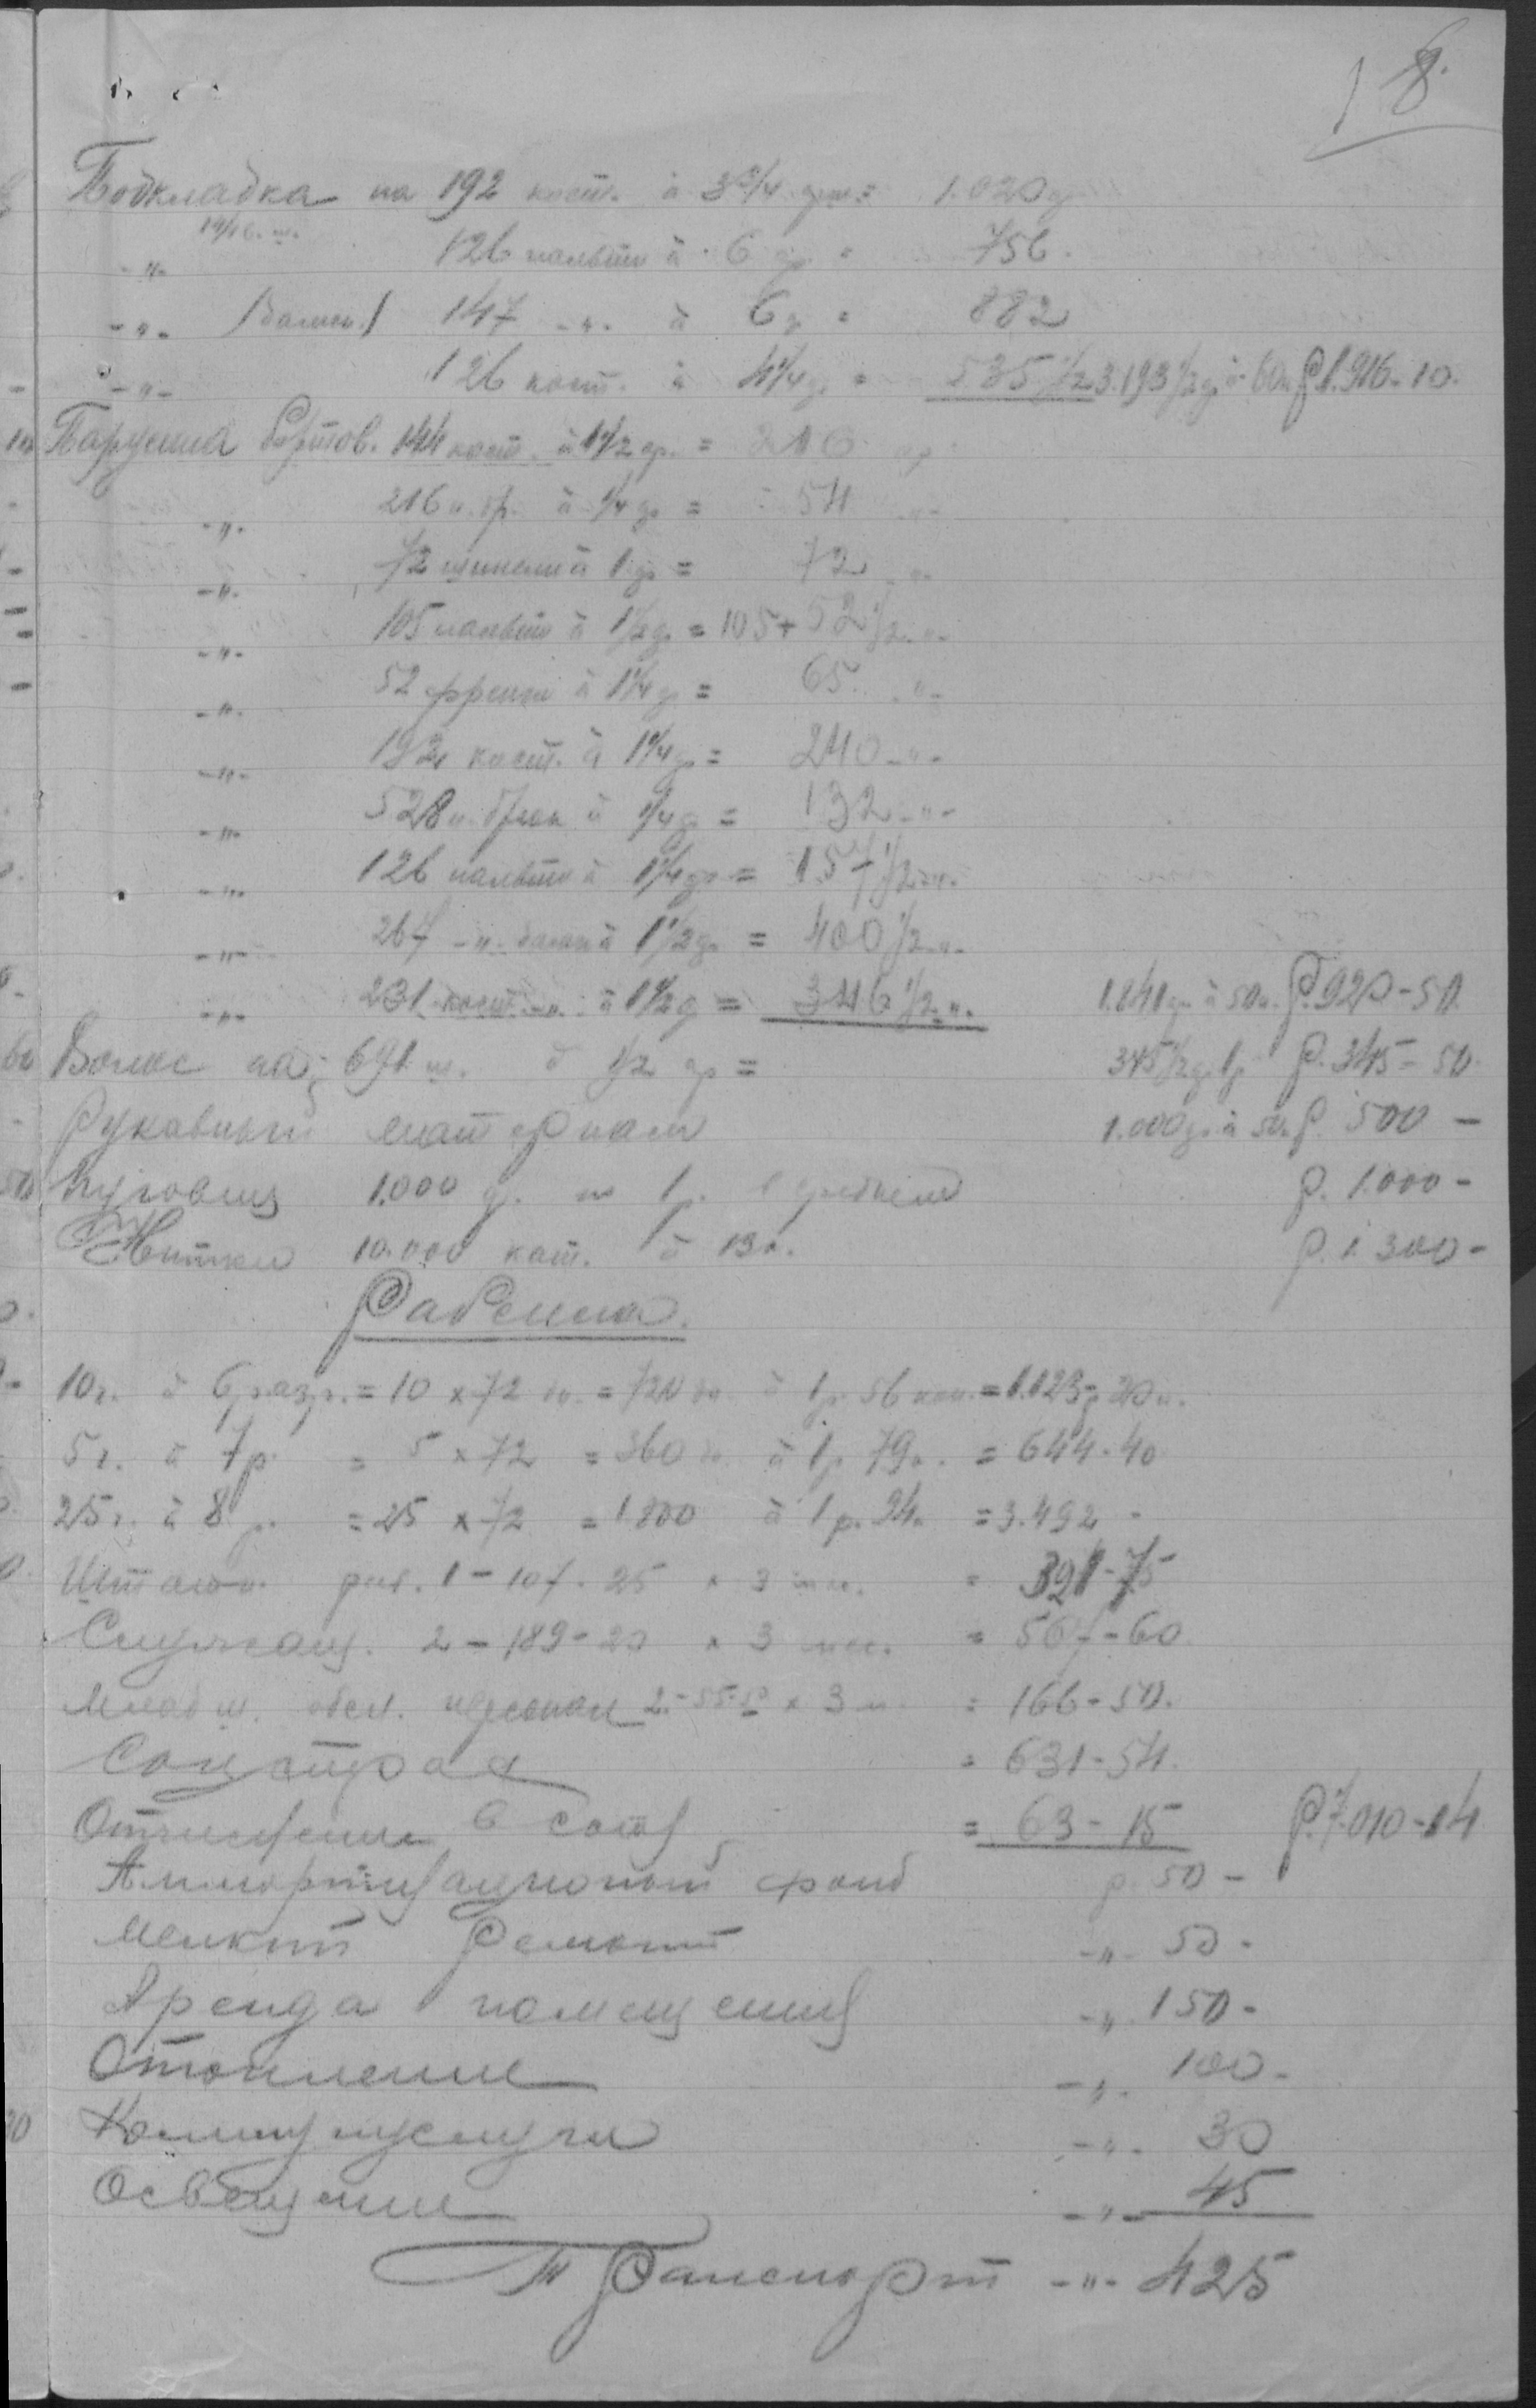 18.
Подкладка на 192 кост. à 3¾ арш. = 1.020 а
-"- 126 пальто à 6 ар. = 756.
-"- /дамск./ 147 -"- à 6 а = 882
-"- 126 кост. à 4¼ а = 535½ 3.193½ а à 60к. Р. 1.916-10.
Парусина бортов. 144 кост. à 1½ ар. = 216 ар
-"- 216 п. бр. à ¼ ар = 54 -"-
-"- 72 шинели à 1 ар = 72 -"-
-"- 105 пальто à 1½ а = 105 + 52½ -"-
-"- 52 френч à 1¼ а = 65 -"-
-"- 192 кост. à 1¼ а = 240 -"-
-"- 528 п. брюк à ¼ а = 132 -"-
-"- 126 пальто à 1¼ ар = 157½ -"-
-"- 267 -"- дамск à 1½ а = 400½ -"-
-"- 231 кост. -"- à 1½ а = 346½ -"- 1.841 ар à 50к. Р. 920-50.
Волос на 691 ш. à ½ ар = 345½ а. 1р Р. 345-50.
Рукавный материал 1.000 ар à 50к Р. 500 -
Пуговиц 1.000 д. по 1 р. в среднем Р. 1.000 -
Нитки 10.000 кат. à 13к. Р. 1.300 -
Рабсила.
10ч. à 6 разр. = 10 x 72 дн. = 720 дн. à 1р. 56 коп. = 1.123р 20к.
5ч. à 7р. = 5 x 72 = 360 дн. à 1р. 79к. = 644-40
25ч. à 8р. = 25 x 72 = 1.800 à 1р. 94к. = 3.492 -
Штатн. раб. 1 - 107.25 x 3 мес. = 321-75
Служащ. 2 - 189-20 x 3 мес. = 567-60
Младш. обсл. персонал 2 - 55-50 x 3 м. = 166-50.
Соцстрах = 631-54.
Отчисления в союз = 63-15 Р. 7.010-14
Аммортизационный фонд р. 50 -
Мелкий Ремонт -"- 50 -
Аренда помещения -"- 150 -
Отопление -"- 100 -
Коммунуслуги -"- 30
Освещение -"- 45
Транспорт -"- 425